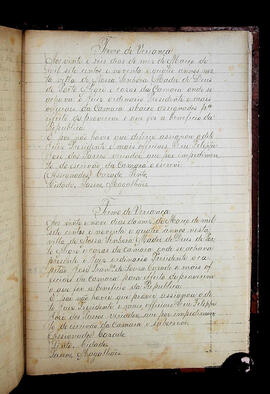 Termo de Vereança
Aos vinte e seis dias do mez de Março de
mil sete centos e noventa e quatro annos nes
ta villa de Nossa Senhora Madre de Deus
de Porto Alegre e casas da Camara onde se
achava o Juiz ordinario Presidente e mais
officiaes da Camara abaixo assignados
de proverem o que for a beneficio da
Republica.
E por não haver que deferir assignou o dito
Juiz Presidente e mais officiaes. Eu Felippe
dos Passos vereador que por impedimen
to do escrivão da Camara o escrevi
(Assignados)
Cidade, Passos, Magalhães
Termo de Vereança
Aos vinte e nove dias do mez de Março de mil
sete centos e noventa e quatro annos nesta
villa de Nossa Senhora Madre de Deus de Por
to Alegre e casas da Camara onde se achava
presente o Juiz ordinario Presidente o ca
pitão e mais of
ficiaes da Camara para effeito de proverem
o que for a beneficio da Republica
E por não haver que prover assignou o di
to Juiz Presidente e mais officiaes. Eu Felippe
dos Passos vereador que por impedimen
to do escrivão da Camara o subscrevi.
Assignados
Cidade
Passos Magalhães